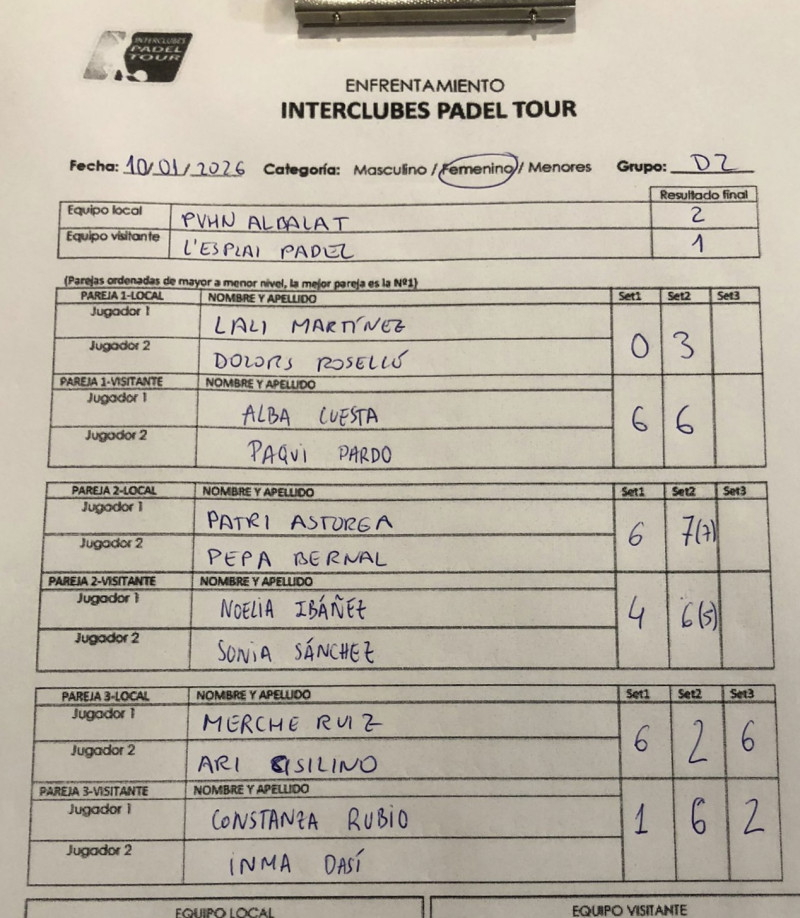 INTERCLUBES
PADEL
TOUR
ENFRENTAMIENTO
INTERCLUBES PADEL TOUR
Fecha: 10/01/2026 Categoría: Masculino / Femenino / Menores Grupo: D2
Resultado final
Equipo local PVHN ALBALAT 2
Equipo visitante L'ESPLAI PADEL 1
(Parejas ordenadas de mayor a menor nivel, la mejor pareja es la Nº1)
PAREJA 1-LOCAL NOMBRE Y APELLIDO Set1 Set2 Set3
Jugador 1 LALI MARTÍNEZ
0 3
Jugador 2 DOLORS ROSELLÓ
PAREJA 1-VISITANTE NOMBRE Y APELLIDO
Jugador 1 ALBA CUESTA
6 6
Jugador 2 PAQUI PARDO
PAREJA 2-LOCAL NOMBRE Y APELLIDO Set1 Set2 Set3
Jugador 1 PATRI ASTORGA
6 7(7)
Jugador 2 PEPA BERNAL
PAREJA 2-VISITANTE NOMBRE Y APELLIDO
Jugador 1 NOELIA IBÁÑEZ
4 6(5)
Jugador 2 SONIA SÁNCHEZ
PAREJA 3-LOCAL NOMBRE Y APELLIDO Set1 Set2 Set3
Jugador 1 MERCHE RUIZ
6 2 6
Jugador 2 ARI
PAREJA 3-VISITANTE NOMBRE Y APELLIDO
Jugador 1 CONSTANZA RUBIO
1 6 2
Jugador 2 INMA DASÍ
EQUIPO LOCAL EQUIPO VISITANTE